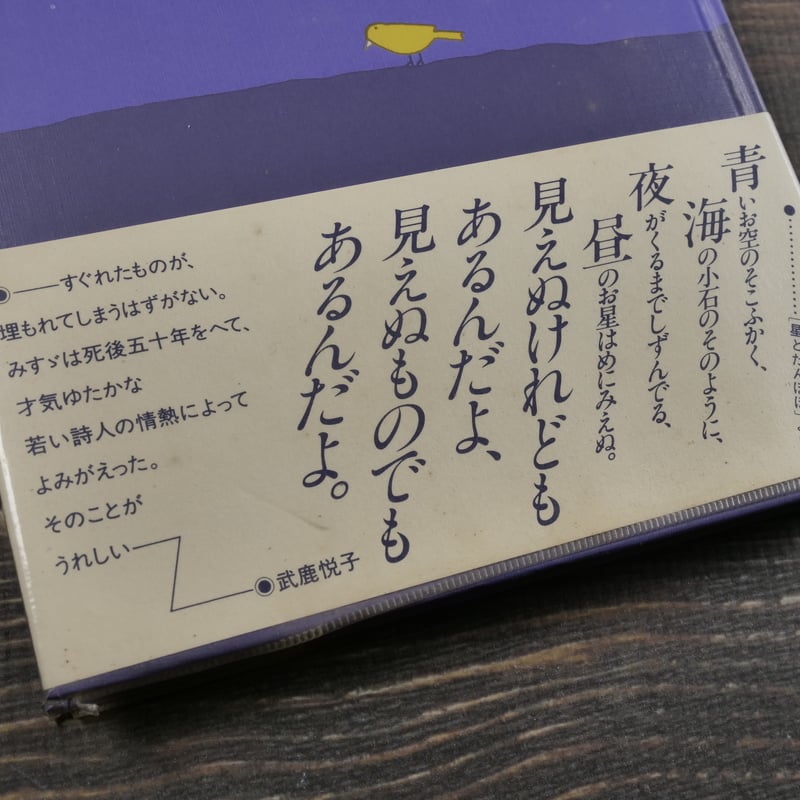 青いお空のそこふかく、
海の小石のそのように、
夜がくるまでしずんでる、
昼のお星はめにみえぬ。
見えぬけれども
あるんだよ、
見えぬものでも
あるんだよ。
「星とたんぽぽ」
――すぐれたものが、
埋もれてしまうはずがない。
みすゞは死後五十年をへて、
才気ゆたかな
若い詩人の情熱によって
よみがえった。
そのことが
うれしい
武鹿悦子